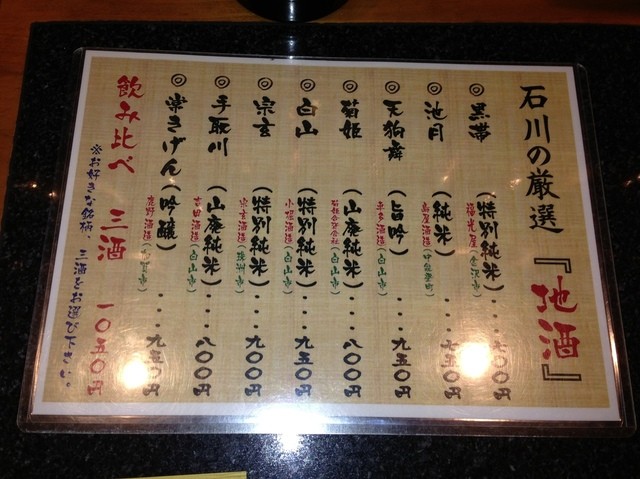 石川の厳選『地酒』
◎黒帯(特別純米)・・・七〇〇円
福光屋(金沢市)
◎池月(純米)・・・・七五〇円
鳥屋酒造(中能登町)
◎天狗舞(旨吟)・・・・九五〇円
車多酒造(白山市)
◎菊姫(山廃純米)・・・八〇〇円
菊姫合資会社(白山市)
◎白山(特別純米)・・・九五〇円
小堀酒造(白山市)
◎宗玄(特別純米)・・・九〇〇円
宗玄酒造(珠洲市)
◎手取川(山廃純米)・・・八〇〇円
吉田酒造(白山市)
◎常きげん(吟醸)・・・九五〇円
鹿野酒造(加賀市)
飲み比べ 三酒 一〇五〇円
※お好きな銘柄、三酒をお選び下さい。